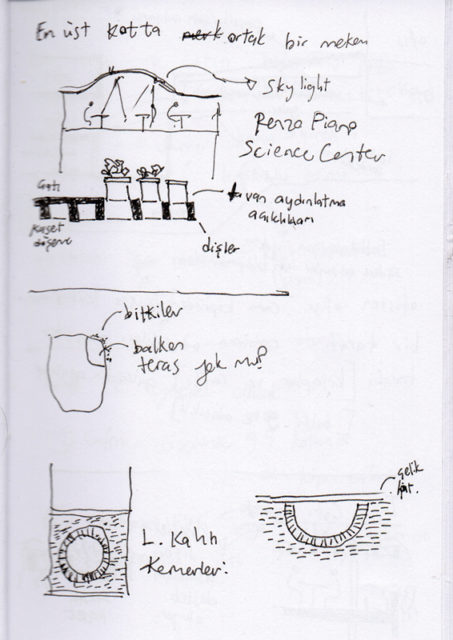 En üst kotta ortak bir mekan
sky light
Renzo Piano
Science Center
Çatı
tavan aydınlatma
açıklıkları
kaset
döşeme
dişler
bitkiler
balkon
teras yok mu?
çelik
L. Kahn
Kemerler: